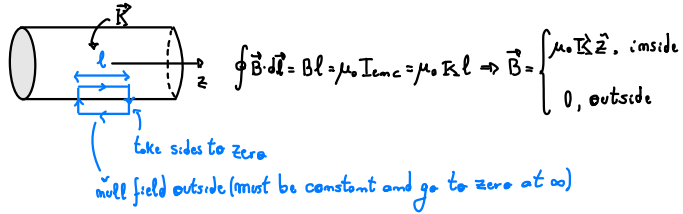 K⃗
l
z
∮B⃗·dl⃗ = Bl = μ₀ I_enc = μ₀ K l ⇒ B⃗ = { μ₀ K ẑ, inside
0, outside
take sides to zero
null field outside (must be constant and go to zero at ∞)